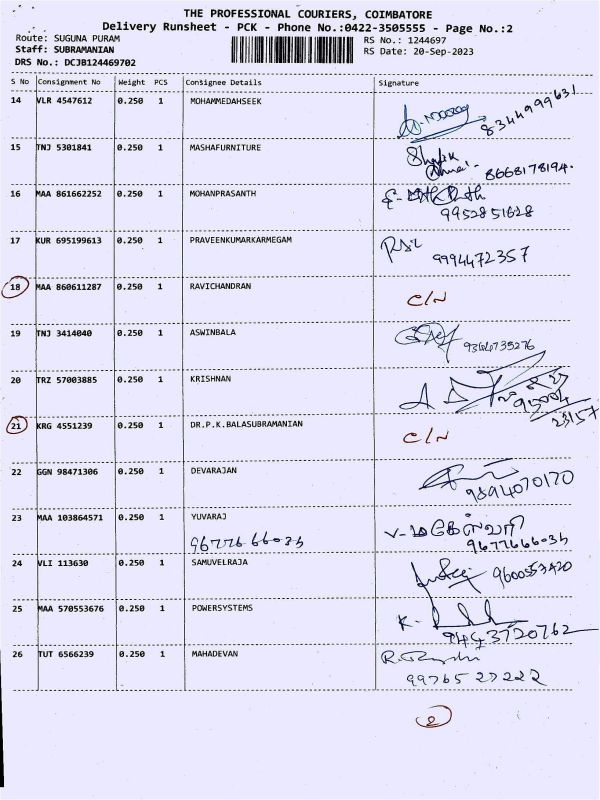 THE PROFESSIONAL COURIERS, COIMBATORE
Delivery Runsheet - PCK - Phone No.:0422-3505555 - Page No.:2
Route: SUGUNA PURAM RS No.: 1244697
Staff: SUBRAMANIAN RS Date: 20-Sep-2023
DRS No.: DCJB124469702
S No Consignment No Weight PCS Consignee Details Signature
14 VLR 4547612 0.250 1 MOHAMMEDAHSEEK
8344999631
15 TNJ 5301841 0.250 1 MASHAFURNITURE
8668178194.
16 MAA 861662252 0.250 1 MOHANPRASANTH
9952851628
17 KUR 695199613 0.250 1 PRAVEENKUMARKARMEGAM
9994472357
18 MAA 860611287 0.250 1 RAVICHANDRAN
C/N
19 TNJ 3414040 0.250 1 ASWINBALA
20 TRZ 57003885 0.250 1 KRISHNAN
21 KRG 4551239 0.250 1 DR.P.K.BALASUBRAMANIAN
C/N
22 GGN 98471306 0.250 1 DEVARAJAN
9894070170
23 MAA 103864571 0.250 1 YUVARAJ
9677666035 9677666035
24 VLI 113630 0.250 1 SAMUVELRAJA
25 MAA 570553676 0.250 1 POWERSYSTEMS
9443720762
26 TUT 6566239 0.250 1 MAHADEVAN
9976527222
2